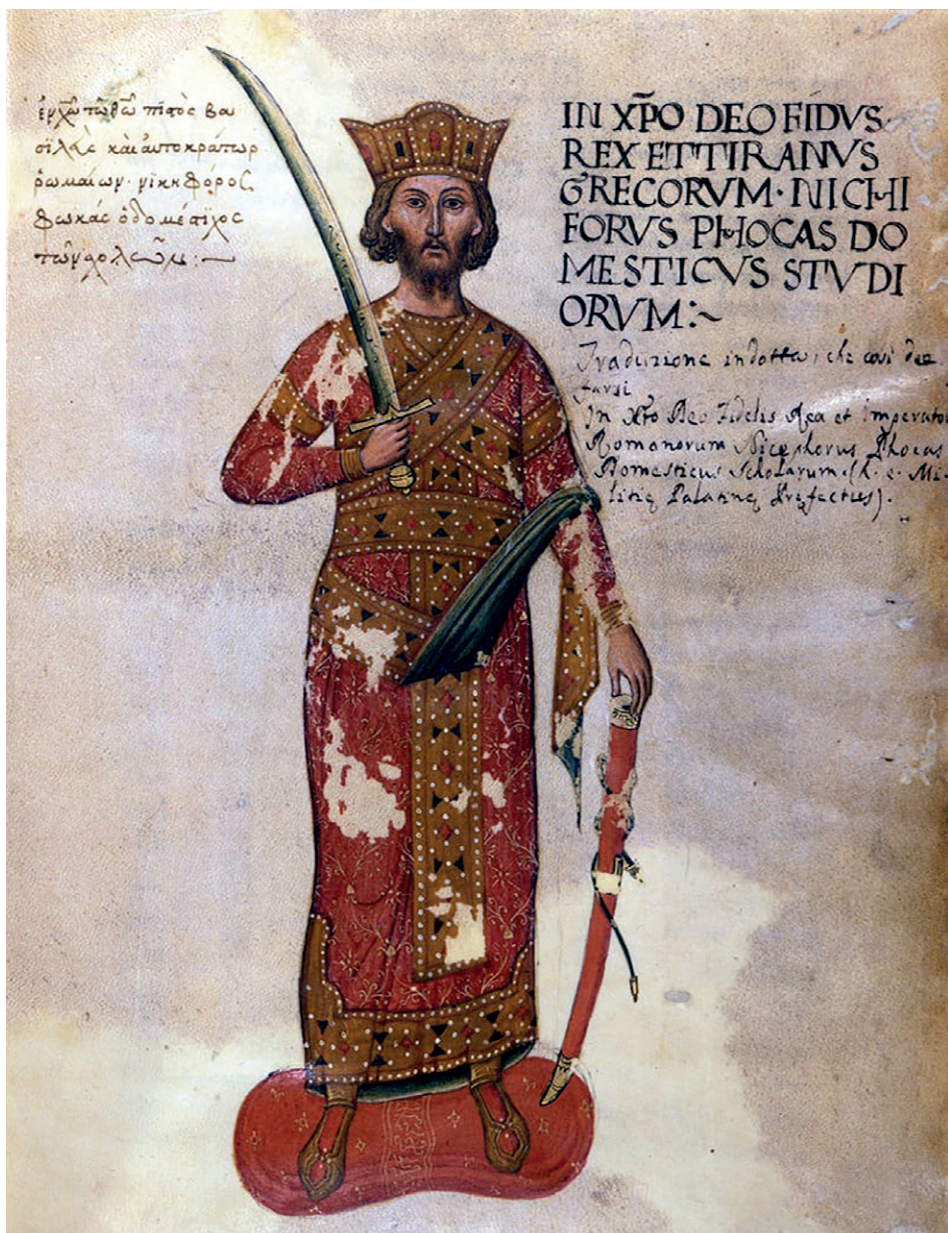 ἐν χ̅ω̅ τῶ θ̅ω̅ πιστὸς βα
σιλεὺς καὶ αὐτοκράτωρ
ῥωμαίων· νικηφόρος
φωκάς ὁ δομέστιχος
τῶν σχολῶν :~
IN XP̅O DEO FIDVS·
REX ET TIRANVS
GRECORVM · NICHI
FORVS PHOCAS DO
MESTICVS STVDI
ORVM :~
Traduzione indotta, che così dee
farsi
In Xto Deo Fidelis Rex et Imperator
Romanorum Nicephorus Phocas
Domesticus Scholarum (h. e. Mi-
litię Palatinę Pręfectus).